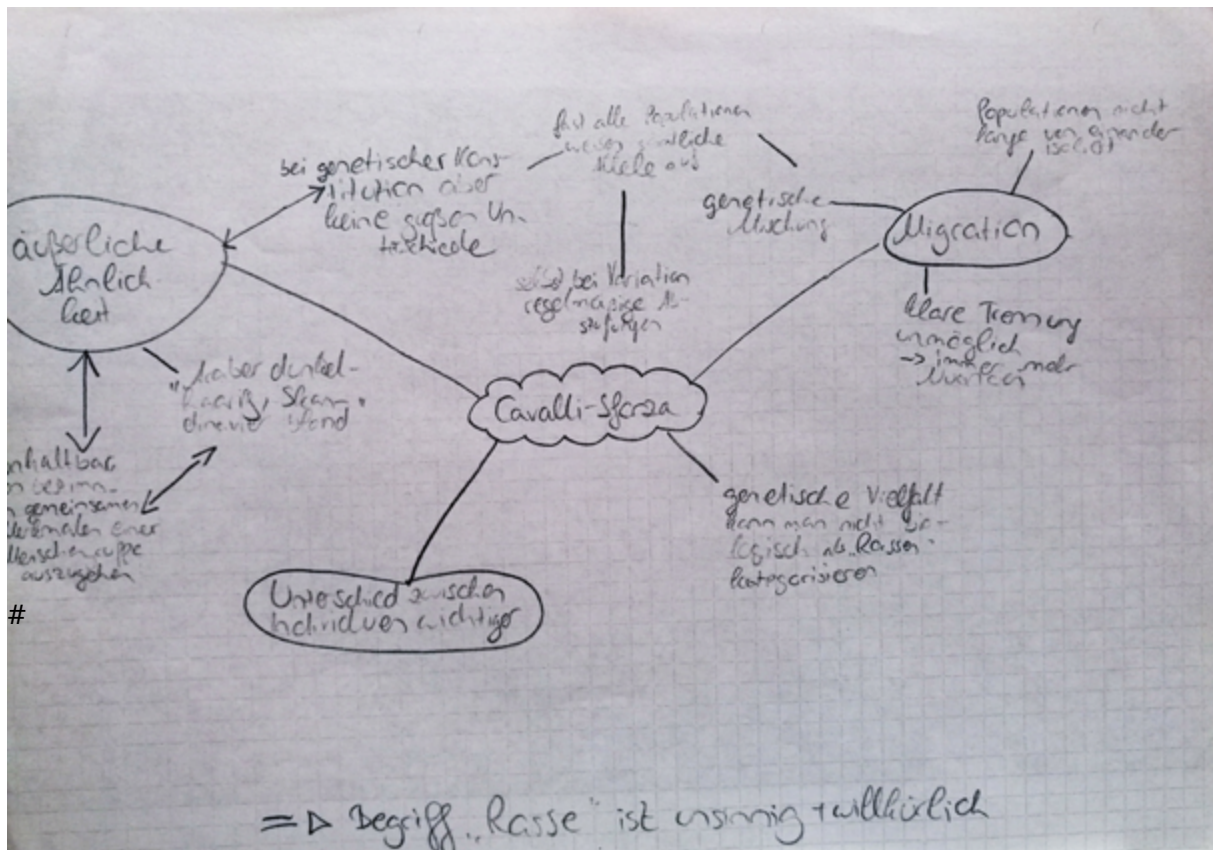 äußerliche
Ähnlich-
keit
bei genetischer Kons-
titution aber
keine großen Un-
terschiede
fast alle Populationen
weisen sämtliche
Allele auf
selbst bei Variation
regelmäßige Ab-
stufungen
genetische
Mischung
Populationen nicht
lange von einander
isoliert
Migration
klare Trennung
unmöglich
-> immer mehr
"Araber dunkel-
haarig, Skan-
dinavier blond"
Cavalli-Sforza
nhaltbar
n bestimm-
n gemeinsamen
Merkmalen einer
Menschengruppe
auszugehen
#
Unterschied zwischen
Individuen wichtiger
genetische Vielfalt
kann man nicht bio-
logisch als "Rassen"
kategorisieren
=> Begriff „Rasse" ist unsinnig + willkürlich